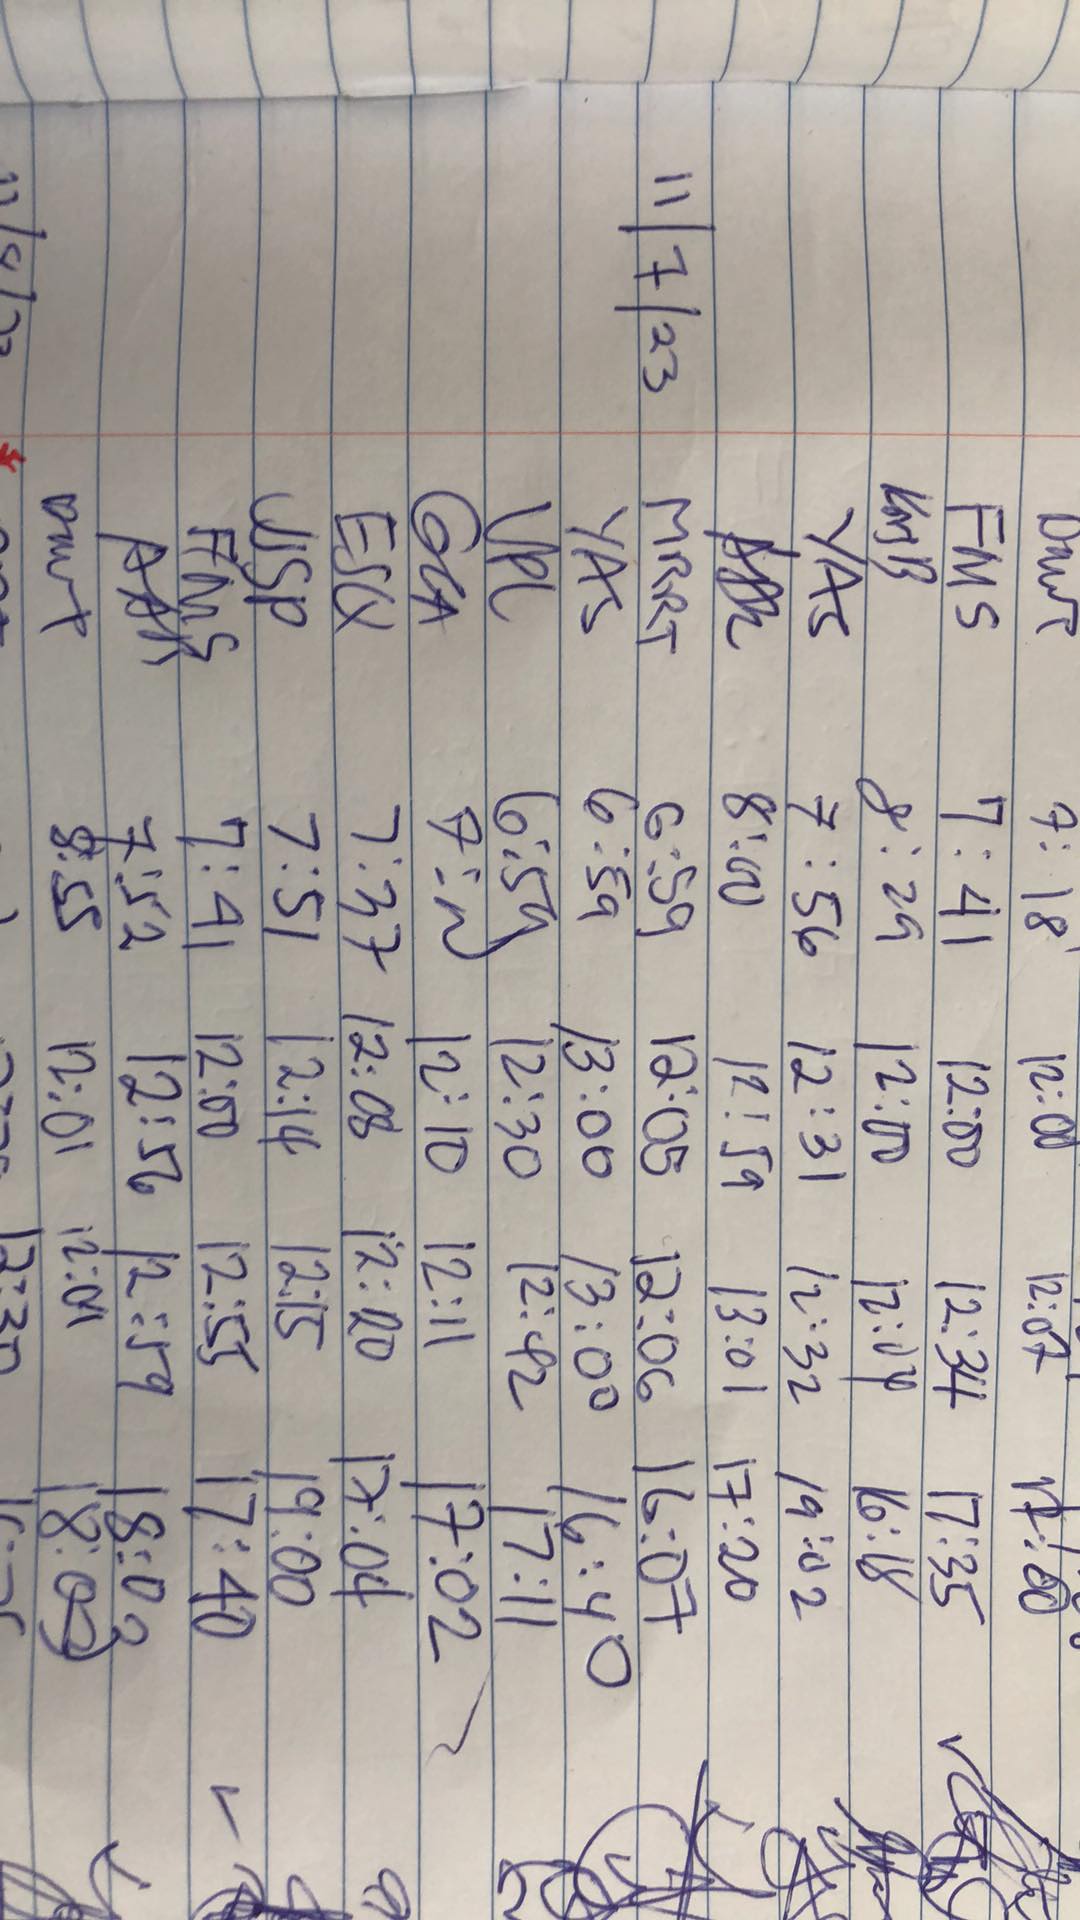 Dmrt 7:18 12:00 12:07 17:00
FMS 7:41 12:00 12:34 17:35
8:29 12:00 12:14 16:18
YAS 7:56 12:31 12:32 19:02
8:00 12:59 13:01 17:20
11/7/23 MRRT 6:59 12:05 12:06 16:07
YAS 6:59 13:00 13:00 16:40
VPL 6:59 12:30 12:42 17:11
GCA 12:10 12:11 17:02
7:37 12:08 12:20 17:04
USP 7:51 12:14 12:15 19:00
FMS 7:41 12:00 12:55 17:40
7:52 12:56 12:59 18:02
Dmrt 8:55 12:01 12:01 18:09
12:30